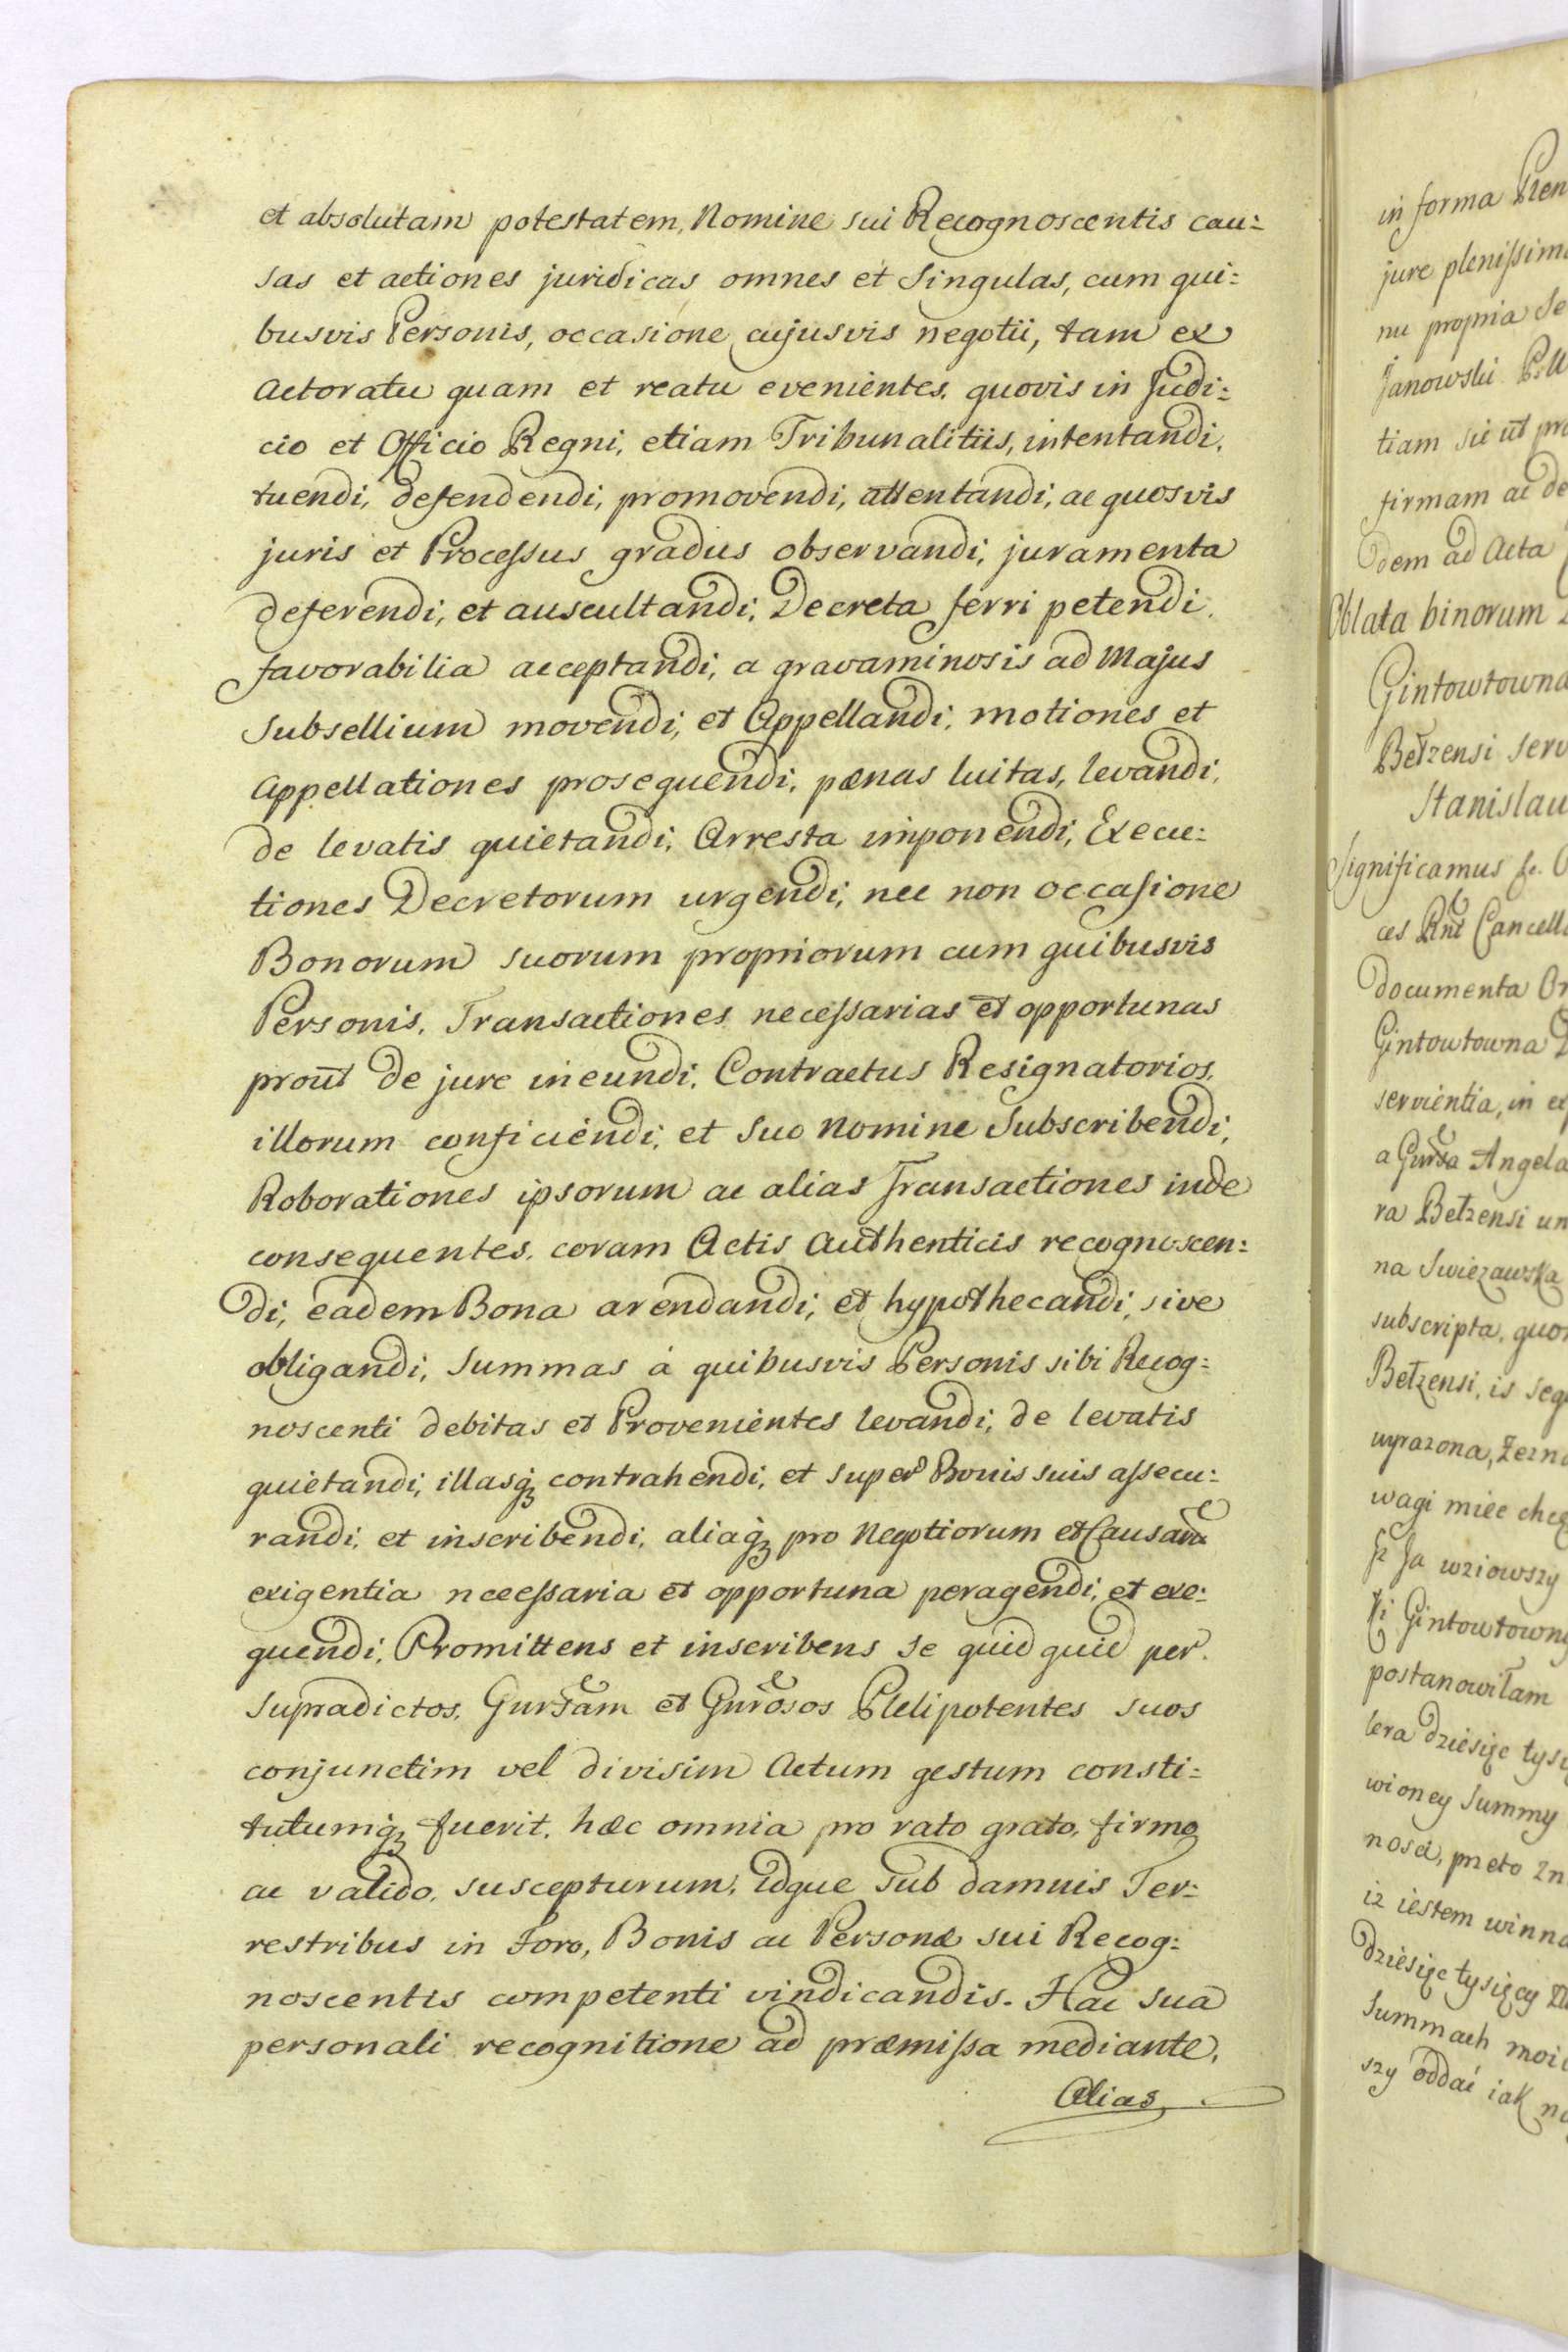 et absolutam potestatem, Nomine sui Recognoscentis cau=
sas et actiones juridicas omnes et Singulas, cum qui=
busvis Personis, occasione cujusvis negotii, tam ex
Actoratu quam et reatu evenientes, quovis in Judi=
cio et Officio Regni, etiam Tribunalitiis, intentandi,
tuendi, defendendi, promovendi, attentandi, ac quosvis
juris et Processus gradus observandi, juramenta
deferendi, et auscultandi, Decreta ferri petendi,
favorabilia acceptandi, a gravaminosis ad Majus
Subsellium movendi, et Appellandi, motiones et
Appellationes prosequendi, pænas luitas, levandi,
de levatis quietandi, Arresta imponendi, Execu=
tiones Decretorum urgendi, nec non occasione
Bonorum suorum propriorum cum quibusvis
Personis, Transactiones necessarias et opportunas
prout de jure ineundi, Contractus Resignatorios,
illorum conficiendi, et Suo Nomine Subscribendi,
Roborationes ipsorum ac alias Transactiones inde
consequentes, coram Actis Authenticis recognoscen=
di, eadem Bona arendandi, et hypothecandi, sive
obligandi, Summas á quibusvis Personis sibi Recog=
noscenti debitas et Provenientes levandi, de levatis
quietandi, illasq́ꝫ contrahendi, et super Bonis suis assecu=
randi, et inscribendi, aliaq́ꝫ pro Negotiorum et Causarũ
exigentia necessaria et opportuna peragendi, et exe=
quendi, Promittens et inscribens se quid quid per
Supradictos, Gursam et Gnrosos Plelipotentes suos
conjunctim vel divisim Actum gestum consti=
tutumq́ꝫ fuerit, hæc omnia pro rato grato, firmo
ac valido, suscepturum, Idque Sub damnis Ter=
restribus in Foro, Bonis ac Personæ sui Recog=
noscentis competenti vindicandis. Hac sua
personali recognitione ad præmissa mediante.
Alias
in forma
jure plenissim
nu propria Se
Janowski
tiam sic ut pro
firmam ac de
dem ad Acta
Oblata binorum
Gintowtowna
Bełzensi serv
Stanislau
Significamus
ces Cancell
documenta Or
Gintowtowna
servientia, in
a Angela
ra Bełzensi un
na Swiezawska
subscripta, quor
Bełzensi, is seq
wyrazona, Zezna
wagi miec chcę
Iż Ja wziowszy
Ki Gintowtowny
postanowiłam
lera dziesięc tysi
wioney Summy
nosci, przeto zn
iz iestem winna
dziesięc tysięcy
Summach moi
szy oddać iak na